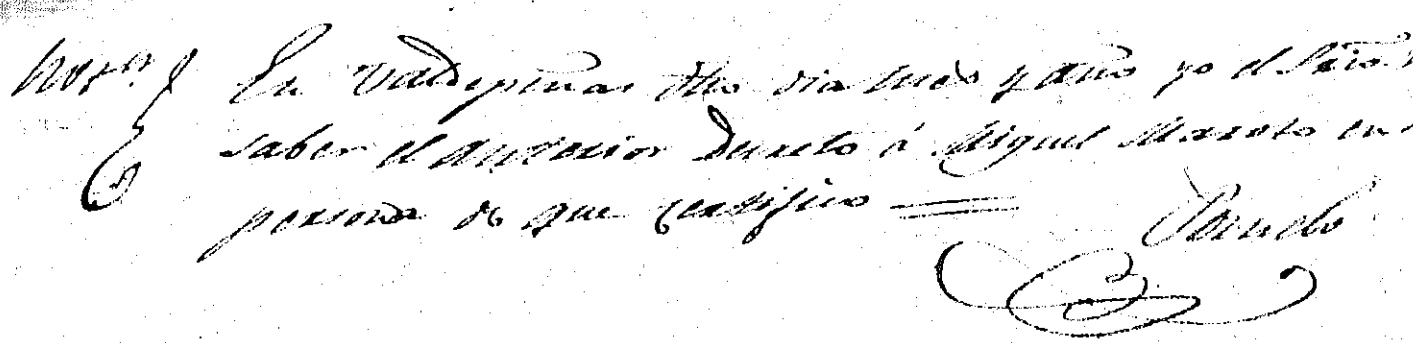 Notn.
En Valdepeñas dho dia mes y año yo el Srio.
saber el anterior Decreto á Miguel Maroto en
persona de que certifico